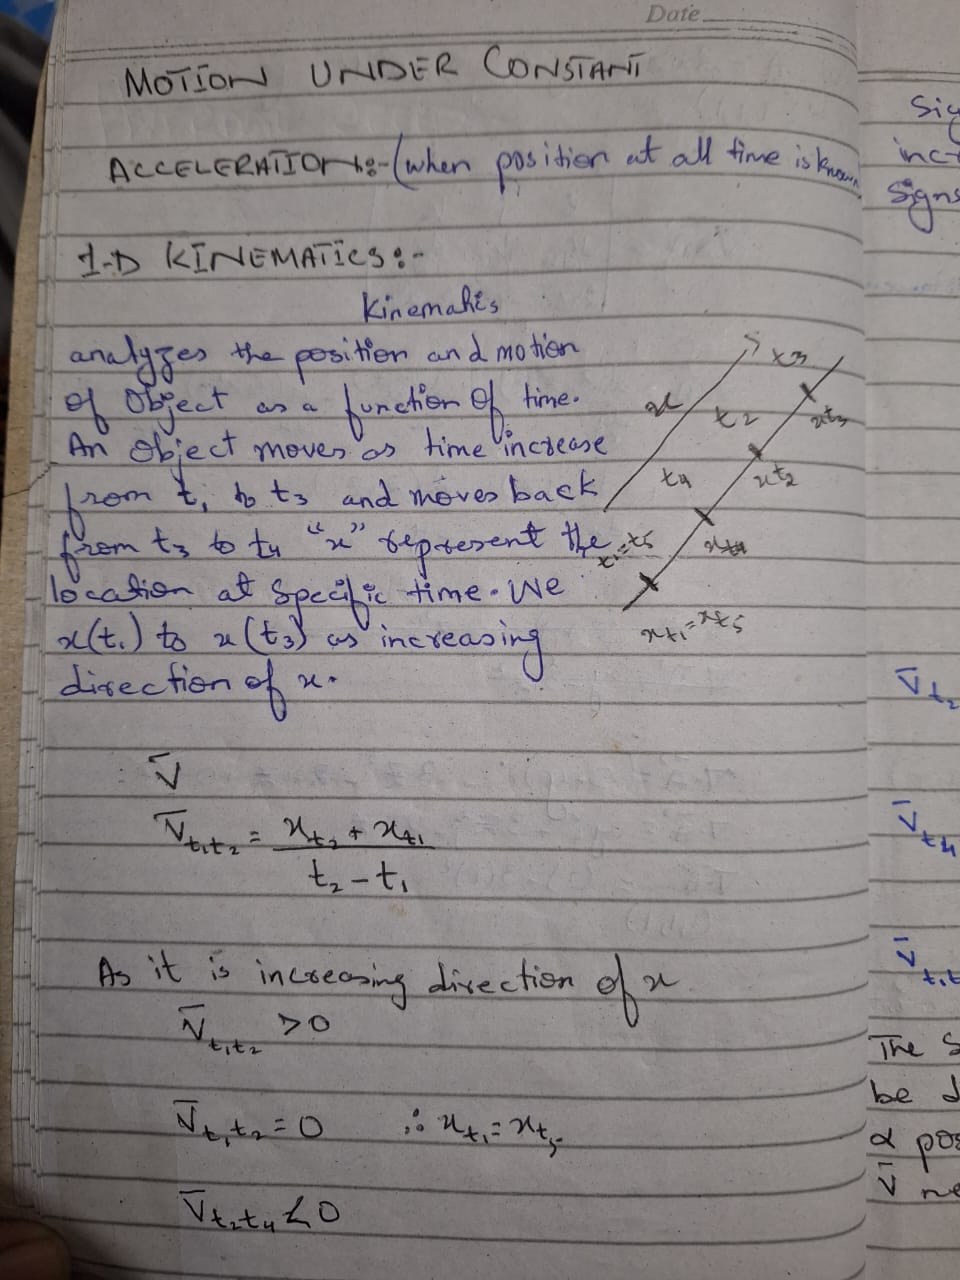 Date
MOTION UNDER CONSTANT
ACCELERATION:-(when position at all time is known
1-D KINEMATICS:-
Kinematis
analyzes the position and motion
of Object as a function of time.
An object moves as time increase
from t₁ to t₃ and moves back
from t₃ to t₄ "x" represent the
location at specific time. We
x(t₁) to x(t₃) as increasing
direction of x.
x
t₃
t₂
t₄
t₁=t₅
xt₃
xt₂
xt₄
xt₁=xt₅
V̄
V̄t₁t₂ = xt₂ + xt₁
t₂ - t₁
As it is increasing direction of x
V̄t₁t₂ >0
V̄t₁t₂=0 ∴ xt₁=xt₅
V̄t₂t₄ <0
Sig
inc
Signs
V̄t₂
V̄t₄
V̄t₁t
The S
be d
α pos
V̄ ne